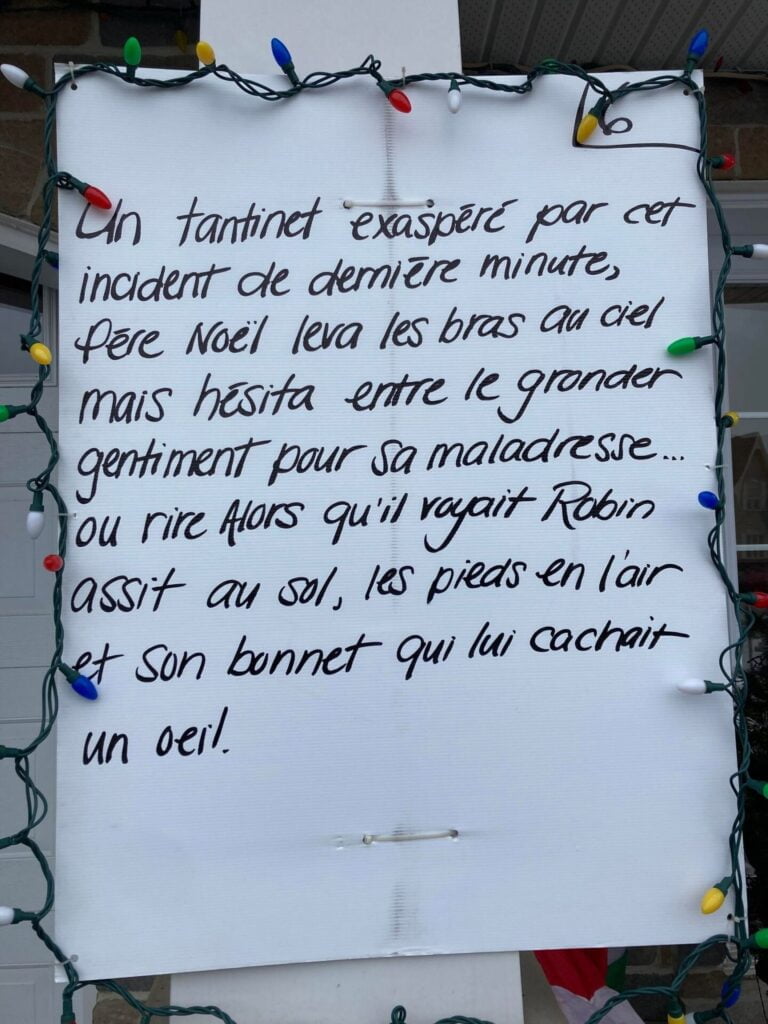 6
Un tantinet exaspéré par cet
incident de dernière minute,
Père Noël leva les bras au ciel
mais hésita entre le gronder
gentiment pour sa maladresse...
ou rire Alors qu'il voyait Robin
assit au sol, les pieds en l'air
et son bonnet qui lui cachait
un oeil.